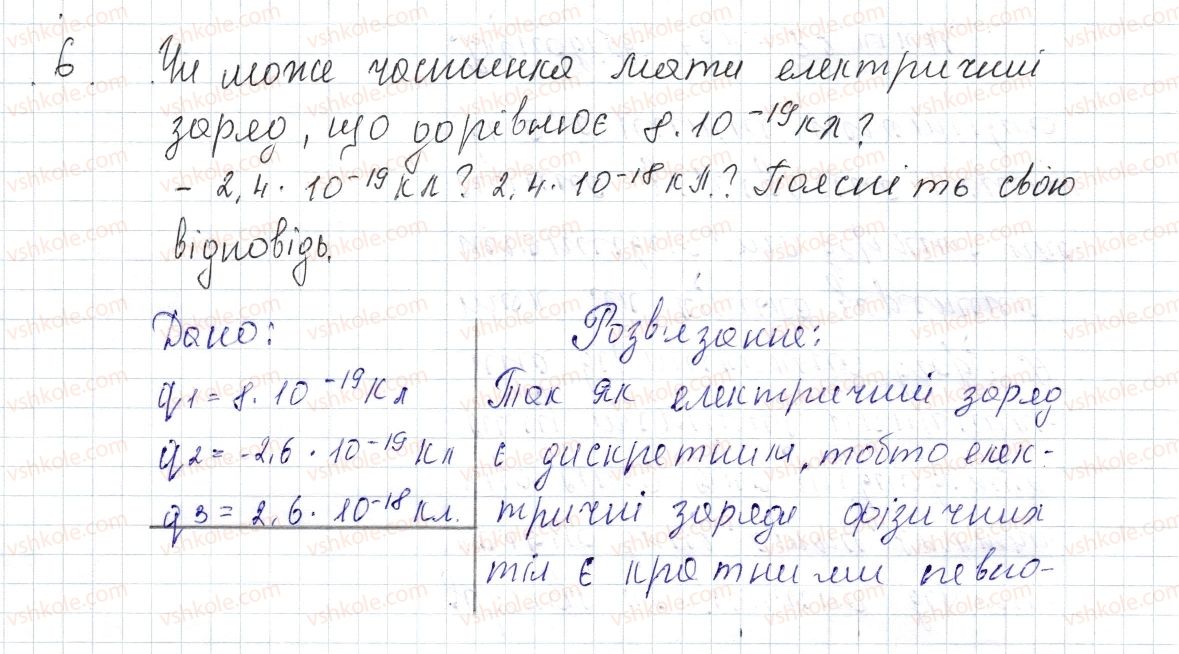 6. Чи може частинка мати електричний
заряд, що дорівнює 8·10⁻¹⁹ Кл?
-2,4·10⁻¹⁹ Кл? 2,4·10⁻¹⁸ Кл? Поясніть свою
відповідь.
Дано:
q1 = 8·10⁻¹⁹ Кл
q2 = -2,6·10⁻¹⁹ Кл
q3 = 2,6·10⁻¹⁸ Кл.
Розв'язання:
Так як електричний заряд
є дискретним, тобто елек-
тричні заряди фізичних
тіл є кратними певно-